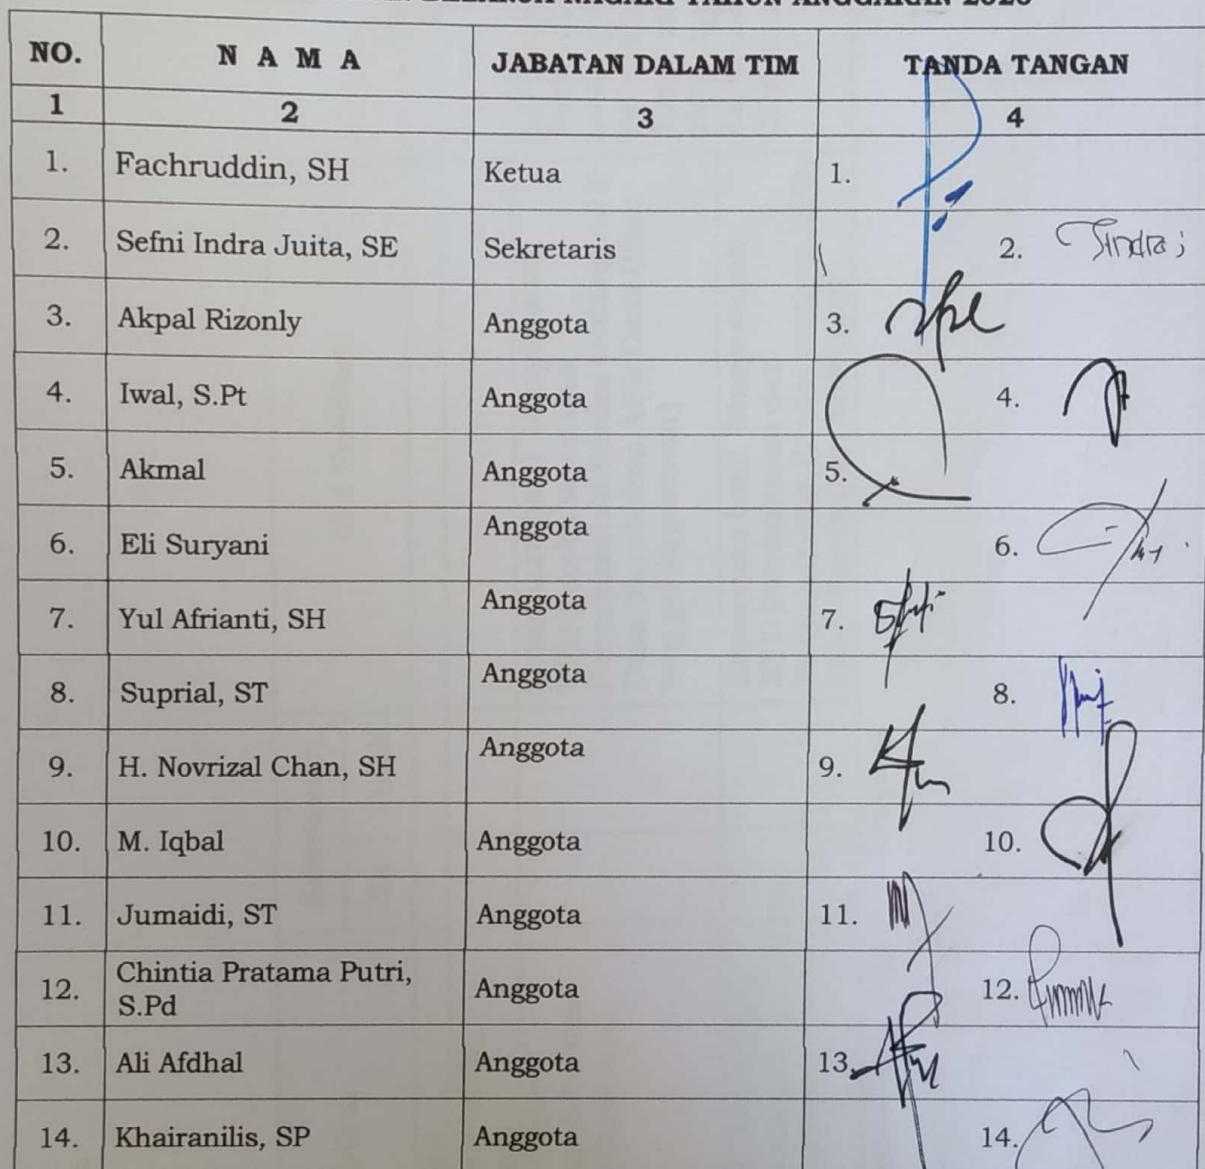 BELANJA NAGARI TAHUN ANGGARAN 2026
NO. N A M A JABATAN DALAM TIM TANDA TANGAN
1 2 3 4
1. Fachruddin, SH Ketua 1.
2. Sefni Indra Juita, SE Sekretaris 2.
3. Akpal Rizonly Anggota 3.
4. Iwal, S.Pt Anggota 4.
5. Akmal Anggota 5.
6. Eli Suryani Anggota 6.
7. Yul Afrianti, SH Anggota 7.
8. Suprial, ST Anggota 8.
9. H. Novrizal Chan, SH Anggota 9.
10. M. Iqbal Anggota 10.
11. Jumaidi, ST Anggota 11.
12. Chintia Pratama Putri, Anggota 12.
S.Pd
13. Ali Afdhal Anggota 13.
14. Khairanilis, SP Anggota 14.